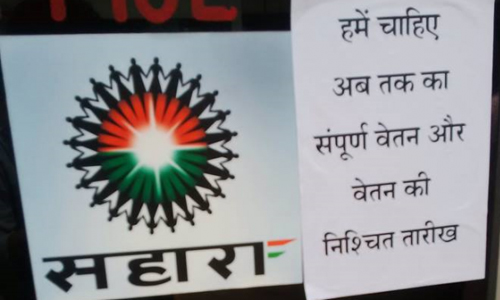 हमें चाहिए
अब तक का
संपूर्ण वेतन और
वेतन की
निश्चित तारीख
सहारा